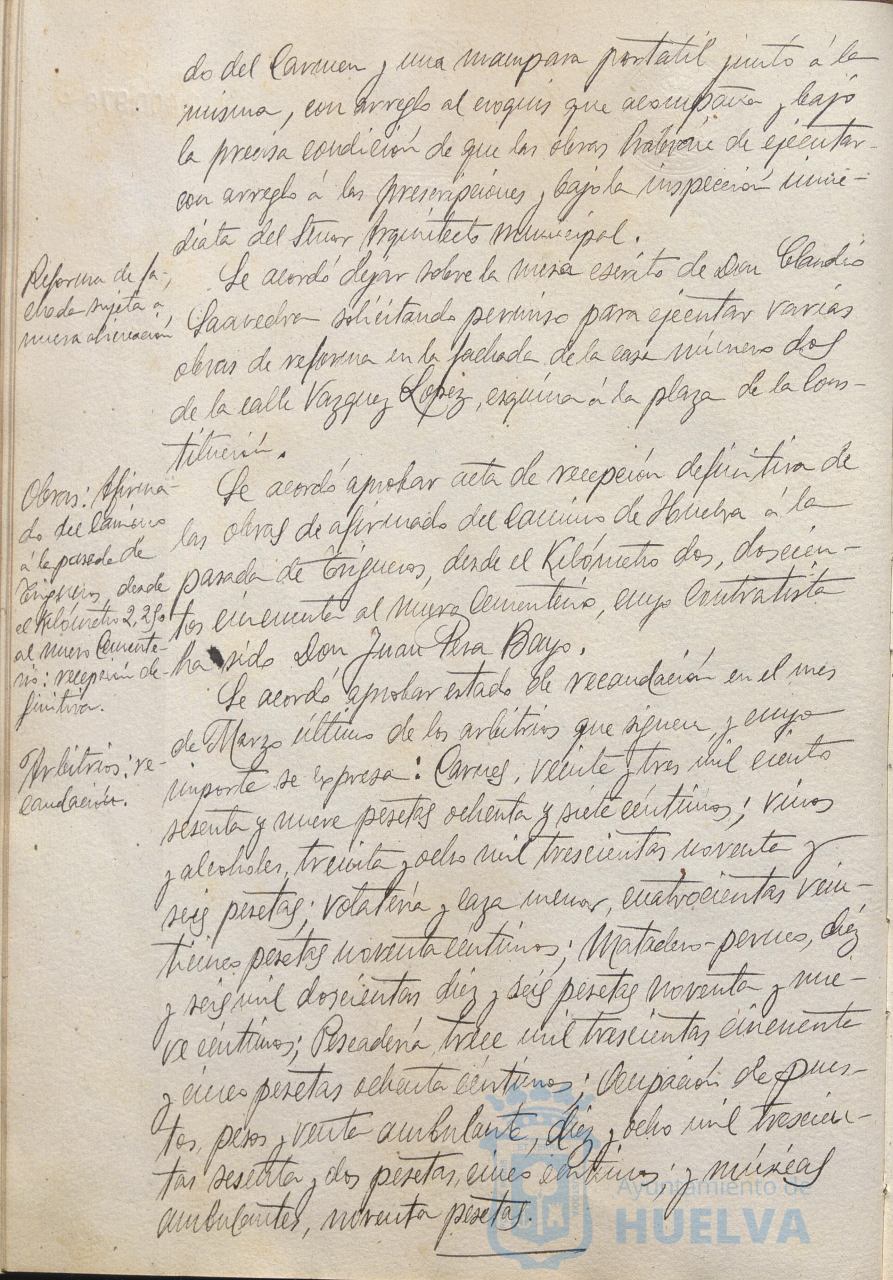 do del Carmen y una mampara portátil junto á la
misma, con arreglo al croquis que acompaña y bajo
la precisa condición de que las obras habrán de ejecutar-
con arreglo á las prescripciones y bajo la inspección inme-
diata del Señor Arquitecto municipal.
Reforma de fa-
chada sujeta a
nueva alineación
Se acordó dejar sobre la mesa escrito de Don Claudio
Saavedra solicitando permiso para ejecutar varias
obras de reforma en la fachada de la casa número dos
de la calle Vazquez Lopez, esquina á la plaza de la Cons-
titución.
Obras: Afirma-
do del Camino
á la pasada de
Trigueros, desde
el Kilómetro 2,250
al nuevo Cemente-
rio: recepción de-
finitiva.
Se acordó aprobar acta de recepción definitiva de
las obras de afirmado del Camino de Huelva á la
pasada de Trigueros, desde el Kilómetro dos, doscien-
tos cincuenta al nuevo Cementerio, cuyo Contratista
ha sido Don Juan Pera Bayo.
Arbitrios: re-
caudación.
Se acordó aprobar estado de recaudación en el mes
de Marzo último de los arbitrios que siguen y cuyo
importe se expresa: Carnes, veinte y tres mil ciento
sesenta y nueve pesetas ochenta y siete céntimos; vinos
y alcoholes, treinta y ocho mil trescientas noventa y
seis pesetas; volatería y caza menor, cuatrocientas vein-
ticinco pesetas noventa céntimos; Matadero-perneo, diéz
y seis mil doscientas diez y seis pesetas noventa y nue-
ve céntimos; Pescadería, trece mil trescientas cincuenta
y cinco pesetas ochenta céntimos; Ocupación de pues-
tos, pesos y venta ambulante, diéz y ocho mil trescien-
tas sesenta y dos pesetas, cinco céntimos y músicas
ambulantes, noventa pesetas.
Ayuntamiento de
HUELVA